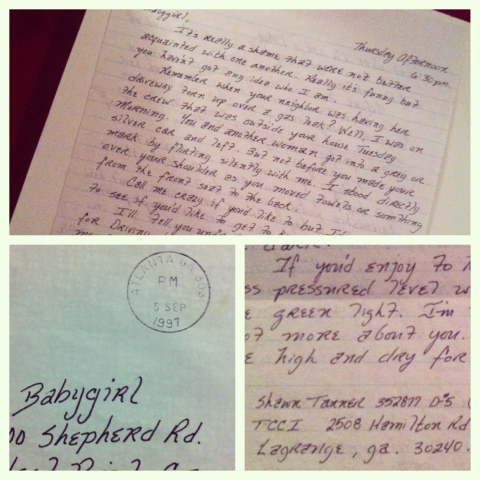 Babygirl,
Thursday Afternoon
6:30pm.
It's really a shame that were not better
acquainted with one another. Really it's funny but
you haven't got any idea who I am.
Remember when your neighbor was having her
driveway torn up over a gas leak? Well, I was on
the crew that was outside your house Tuesday
morning. You and another woman got into a gray or
silver car and left. But not before you made your
mark by flirting silently with me. I stood directly
over your shoulder as you moved towels or something
from the front seat to the back.
Call me crazy if you'd like to but I
to see if you'd like to get
I'll tell you
for Driving
ATLANTA GA 303
PM
5 SEP
1997
Babygirl
00 Shepherd Rd.
If you'd enjoy to
ss pressured level w
green light. I'm
of more about you.
e high and dry for
Shawn Tanner 352877 D-5
TCCI 2508 Hamilton Rd
Lagrange, ga. 30240.